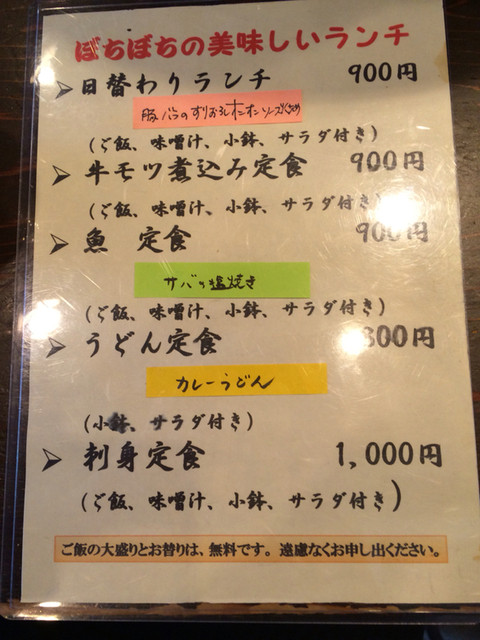 ぼちぼちの美味しいランチ
➢ 日替わりランチ 900円
豚バラのすりおろしオニオンソース
(ご飯、味噌汁、小鉢、サラダ付き)
➢ 牛モツ煮込み定食 900円
(ご飯、味噌汁、小鉢、サラダ付き)
➢ 魚 定食 900円
サバの塩焼き
(ご飯、味噌汁、小鉢、サラダ付き)
➢ うどん定食 800円
カレーうどん
(小鉢、サラダ付き)
➢ 刺身定食 1,000円
(ご飯、味噌汁、小鉢、サラダ付き)
ご飯の大盛りとお替りは、無料です。遠慮なくお申し出ください。